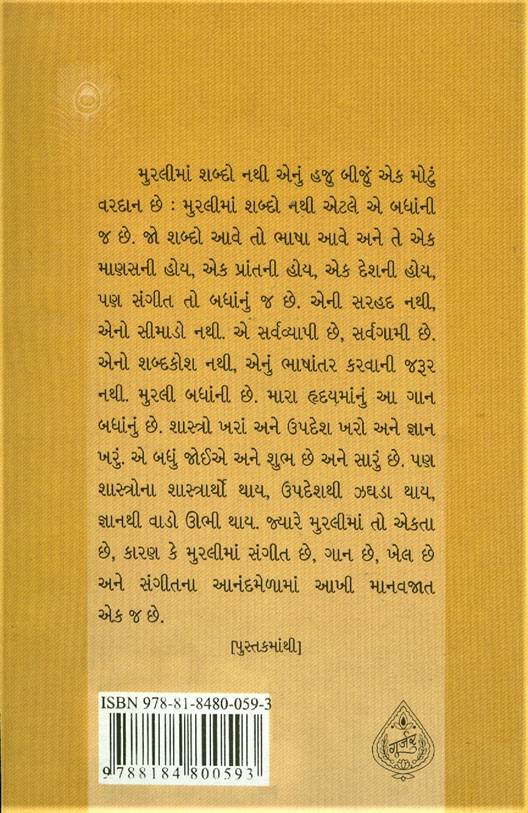 મુરલીમાં શબ્દો નથી એનું હજુ બીજું એક મોટું
વરદાન છે : મુરલીમાં શબ્દો નથી એટલે એ બધાંની
જ છે. જો શબ્દો આવે તો ભાષા આવે અને તે એક
માણસની હોય, એક પ્રાંતની હોય, એક દેશની હોય,
પણ સંગીત તો બધાંનું જ છે. એની સરહદ નથી,
એનો સીમાડો નથી. એ સર્વવ્યાપી છે, સર્વગામી છે.
એનો શબ્દકોશ નથી, એનું ભાષાંતર કરવાની જરૂર
નથી. મુરલી બધાંની છે. મારા હૃદયમાંનું આ ગાન
બધાંનું છે. શાસ્ત્રો ખરાં અને ઉપદેશ ખરો અને જ્ઞાન
ખરું. એ બધું જોઈએ અને શુભ છે અને સારું છે. પણ
શાસ્ત્રોના શાસ્ત્રાર્થો થાય, ઉપદેશથી ઝઘડા થાય,
જ્ઞાનથી વાડો ઊભી થાય. જ્યારે મુરલીમાં તો એકતા
છે, કારણ કે મુરલીમાં સંગીત છે, ગાન છે, ખેલ છે
અને સંગીતના આનંદમેળામાં આખી માનવજાત
એક જ છે.
[પુસ્તકમાંથી]
ISBN 978-81-8480-059-3
9 788184 800593
ગૂર્જર